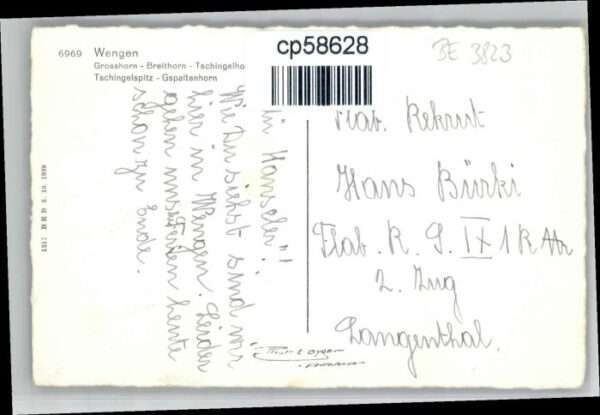 6969 Wengen
Grosshorn - Breithorn - Tschingelho
Tschingelspitz - Gspaltenhorn
cp58628
BE 3823
Hanscler!!
Wie Du siehst sind wir
hier in Wengen. Leider
gehen uns Ferien heute
schon zu Ende.
Flab. Rekrut
Hans Bürki
Flab. R. S. IX 1 R Attr
2. Zug
Langenthal.